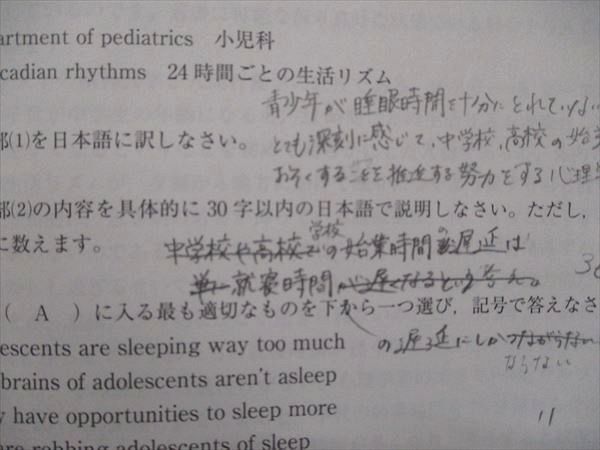 artment of pediatrics 小児科
cadian rhythms 24時間ごとの生活リズム
青少年が睡眠時間を十分にとれていない
部(1)を日本語に訳しなさい。
とても深刻に感じて、中学校、高校の始業
おそくする を推進する努力をする心理学
部(2)の内容を具体的に 30 字以内の日本語で説明しなさい。ただし,
に数えます。
学校
中学校や高校での始業時間の遅延は
単に就寝時間が遅くなるという答え。
( A )に入る最も適切なものを下から一つ選び, 記号で答えなさ
の遅延にしかつながらない
ならない
escents are sleeping way too much
brains of adolescents aren't asleep
y have opportunities to sleep more
11
are robbing adolescents of sleep